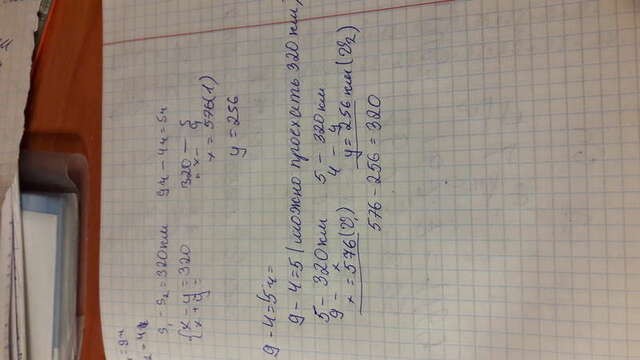 = 9ч
= 4ч
S₁ - S₂ = 320 км 9ч - 4ч = 5ч
{ x - y = 320 320 - 5
x + y = x - 9
x = 576 (1)
y = 256
9 - 4 = 5ч =
9 - 4 = 5 (можно проехать 320 км)
5 - 320 км 5 - 320 км
9 - x 4 - y
x = 576 (V₁) y = 256 км (V₂)
576 - 256 = 320